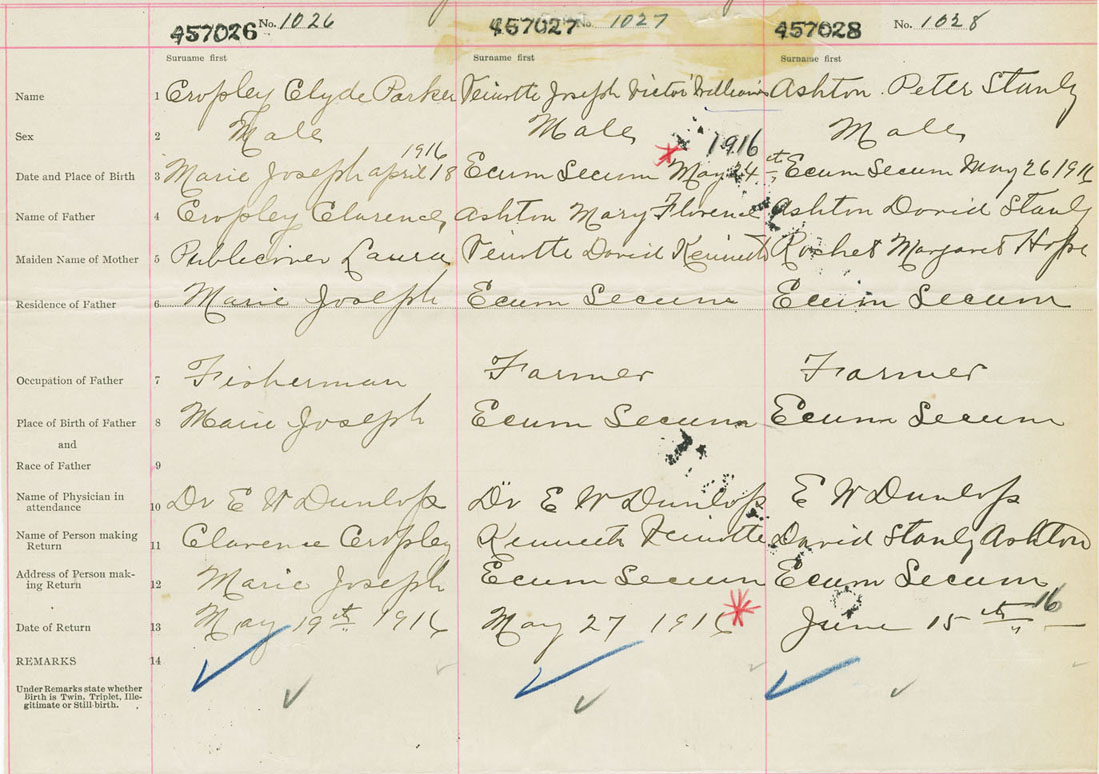 457026 No. 1026 457027 No. 1027 457028 No. 1028
Surname first Surname first Surname first
Name 1 Cropley Clyde Parker Veinotte Joseph Victor William Ashton Peter Stanly
Sex 2 Male Male Male
1916 1916
Date and Place of Birth 3 Marie Joseph April 18 Ecum Secum May 24th Ecum Secum May 26 1916
Name of Father 4 Cropley Clarence Ashton Mary Florence Ashton David Stanly
Maiden Name of Mother 5 Publicover Laura Veinotte David Kenneth Margaret Hope
Residence of Father 6 Marie Joseph Ecum Secum Ecum Secum
Occupation of Father 7 Fisherman Farmer Farmer
Place of Birth of Father 8 Marie Joseph Ecum Secum Ecum Secum
and
Race of Father 9
Name of Physician in
attendance 10 Dr E W Dunlop Dr E W Dunlop E W Dunlop
Name of Person making
Return 11 Clarence Cropley Kenneth Veinotte David Stanly Ashton
Address of Person mak-
ing Return 12 Marie Joseph Ecum Secum Ecum Secum
Date of Return 13 May 19th 1916 May 27 1916 June 15th 16
REMARKS 14
Under Remarks state whether
Birth is Twin, Triplet, Ille-
gitimate or Still-birth.